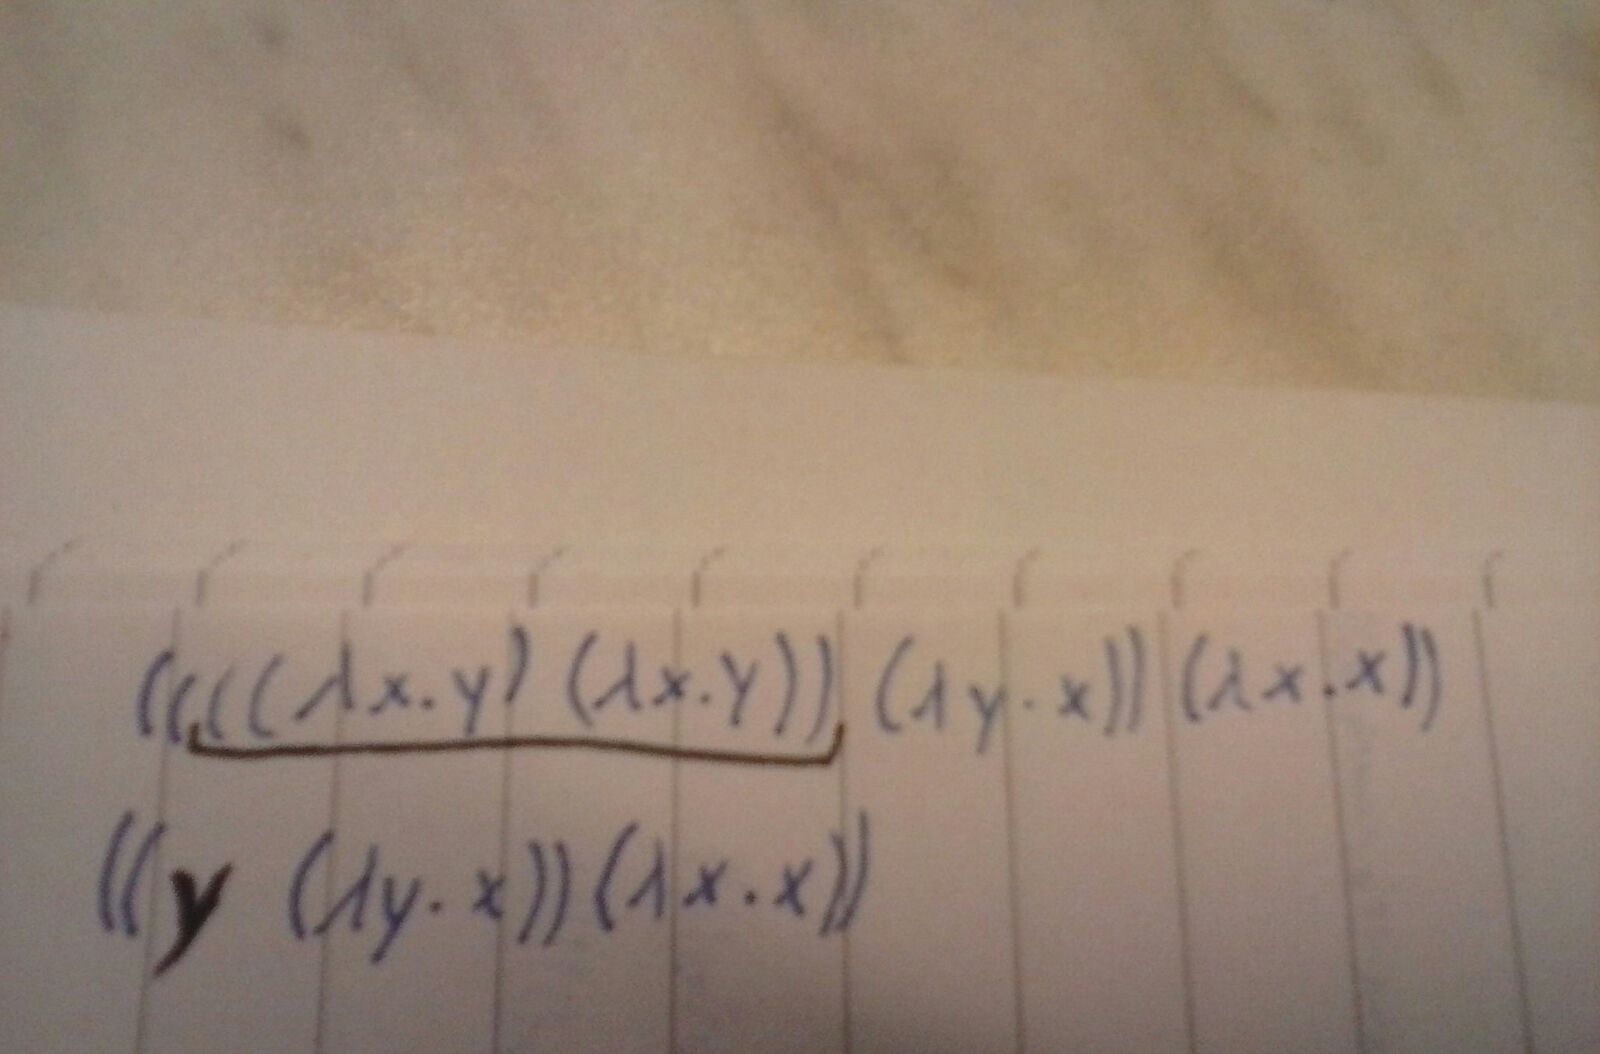 (((((λx.y) (λx.y)) (λy.x)) (λx.x))
((y (λy.x)) (λx.x))